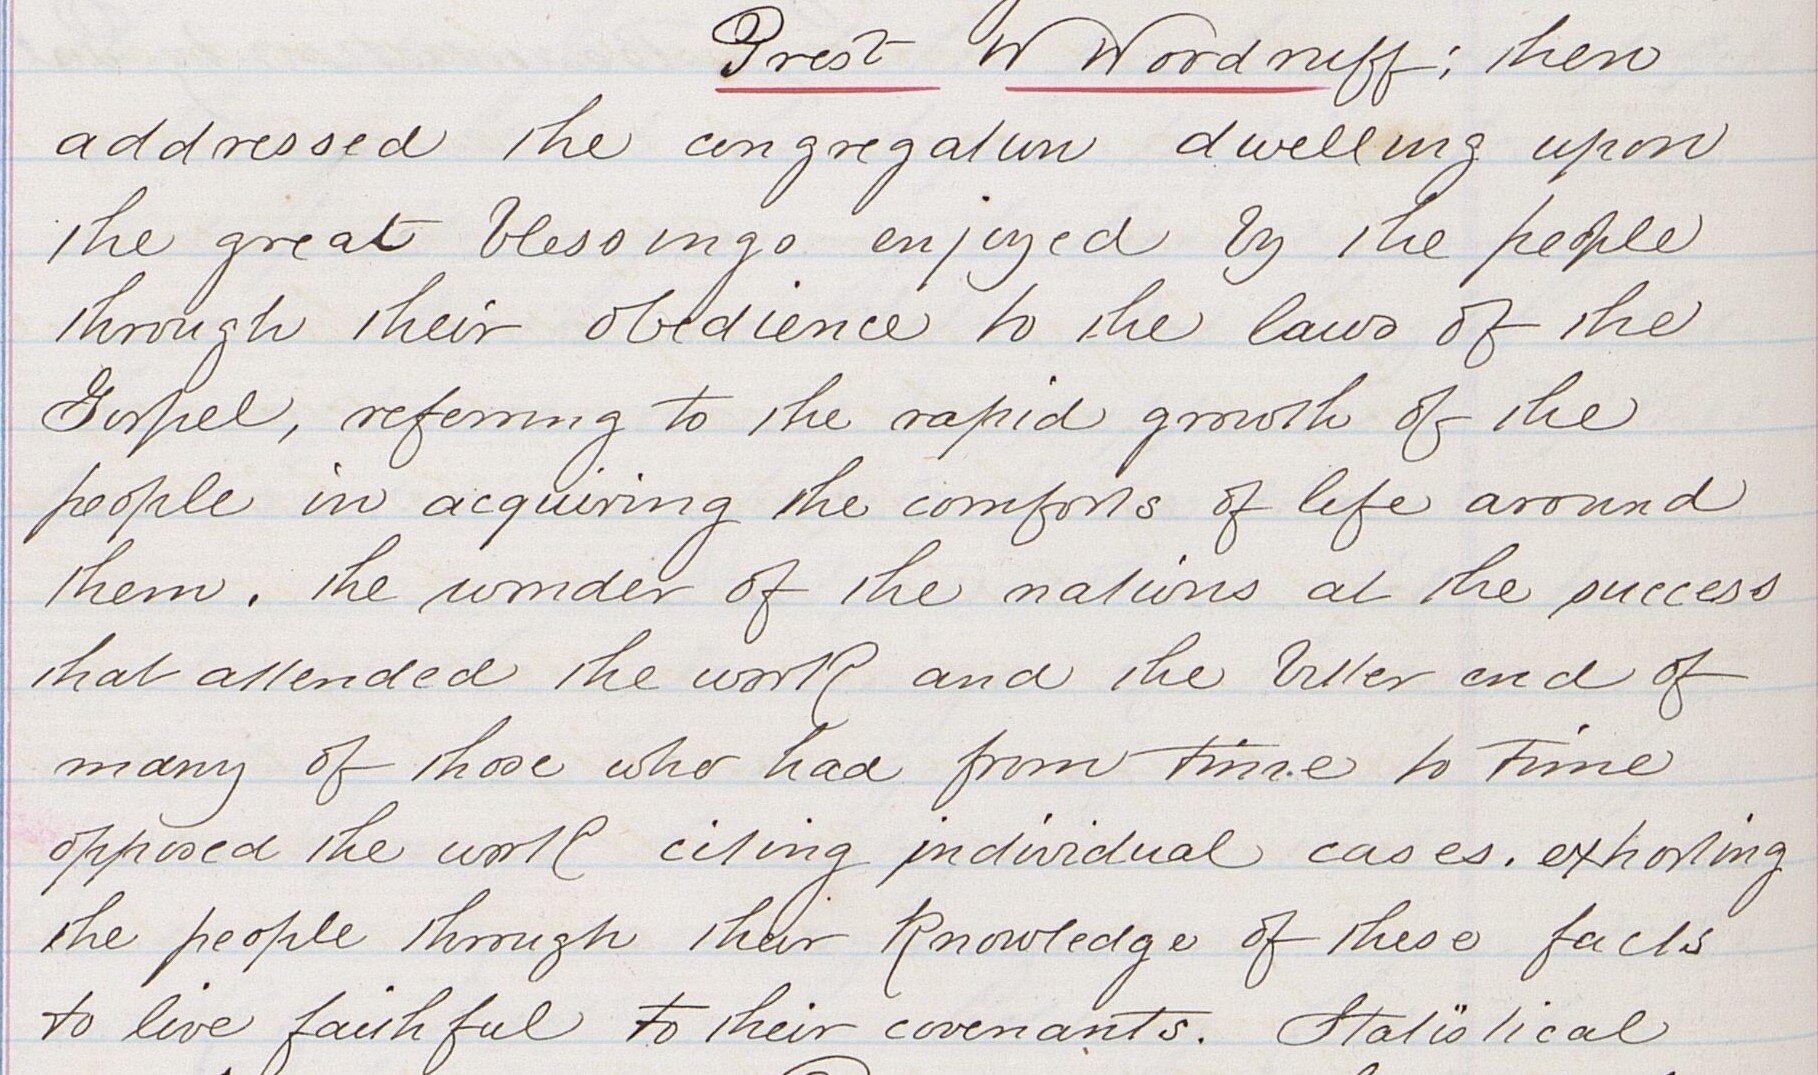 Prest W Woodruff; then
addressed the congregation dwelling upon
the great blessings enjoyed by the people
through their obedience to the laws of the
Gospel, referring to the rapid growth of the
people in acquiring the comforts of life around
them. the wonder of the nations at the success
that attended the work and the bitter end of
many of those who had from time to time
opposed the work citing individual cases. exhorting
the people through their knowledge of these facts
to live faithful to their covenants. Statistical